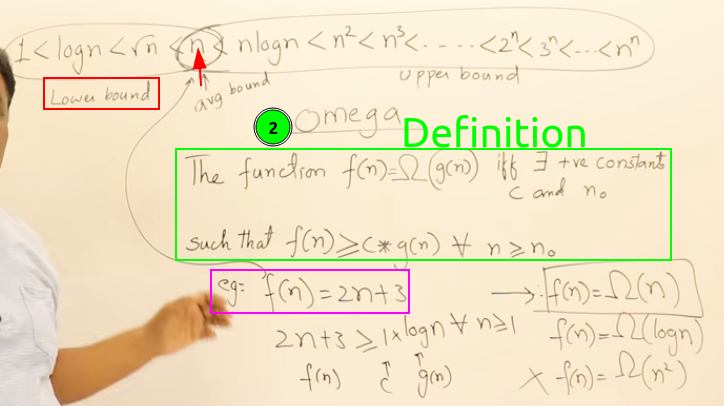 1 < logn < √n < n < nlogn < n² < n³ < ..... < 2ⁿ < 3ⁿ < ... < nⁿ
Lower bound
avg bound
Upper bound
2
Omega
Definition
The function f(n)=Ω(g(n)) iff ∃ +ve constants
c and n₀
such that f(n) ≥ c*g(n) ∀ n ≥ n₀
eg: f(n) = 2n+3
→ ∴ f(n) = Ω(n)
2n+3 ≥ 1×logn ∀ n≥1
f(n) = Ω(logn)
f(n) c g(n)
× f(n) = Ω(n²)